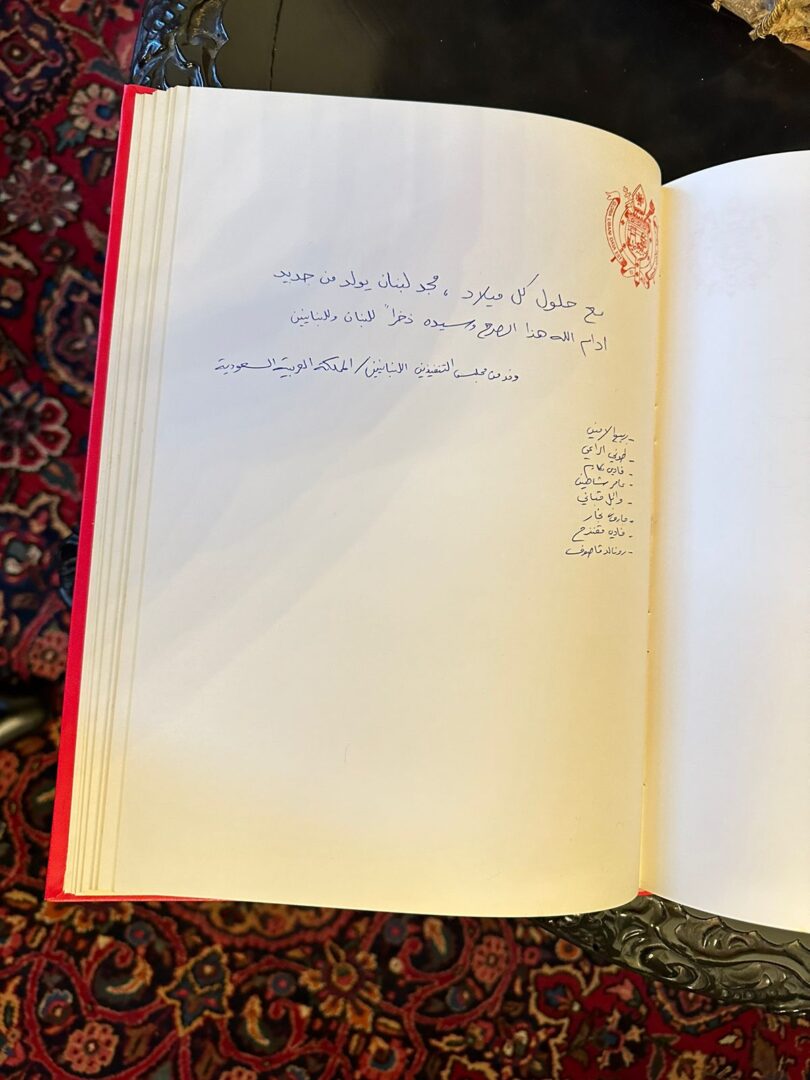 مع حلول كل ميلاد ، مجد لبنان يولد من جديد
ادام الله هذا الصرح وسيده ذخراً للبنان وللبنانيين
وفد من مجلس التنفيذيين اللبنانيين / المملكة العربية السعودية
- ربيع الامين
- طوني الراعي
- فادي
- شاهين
- وائل قباني
- فادي
- رونالد قاصوف